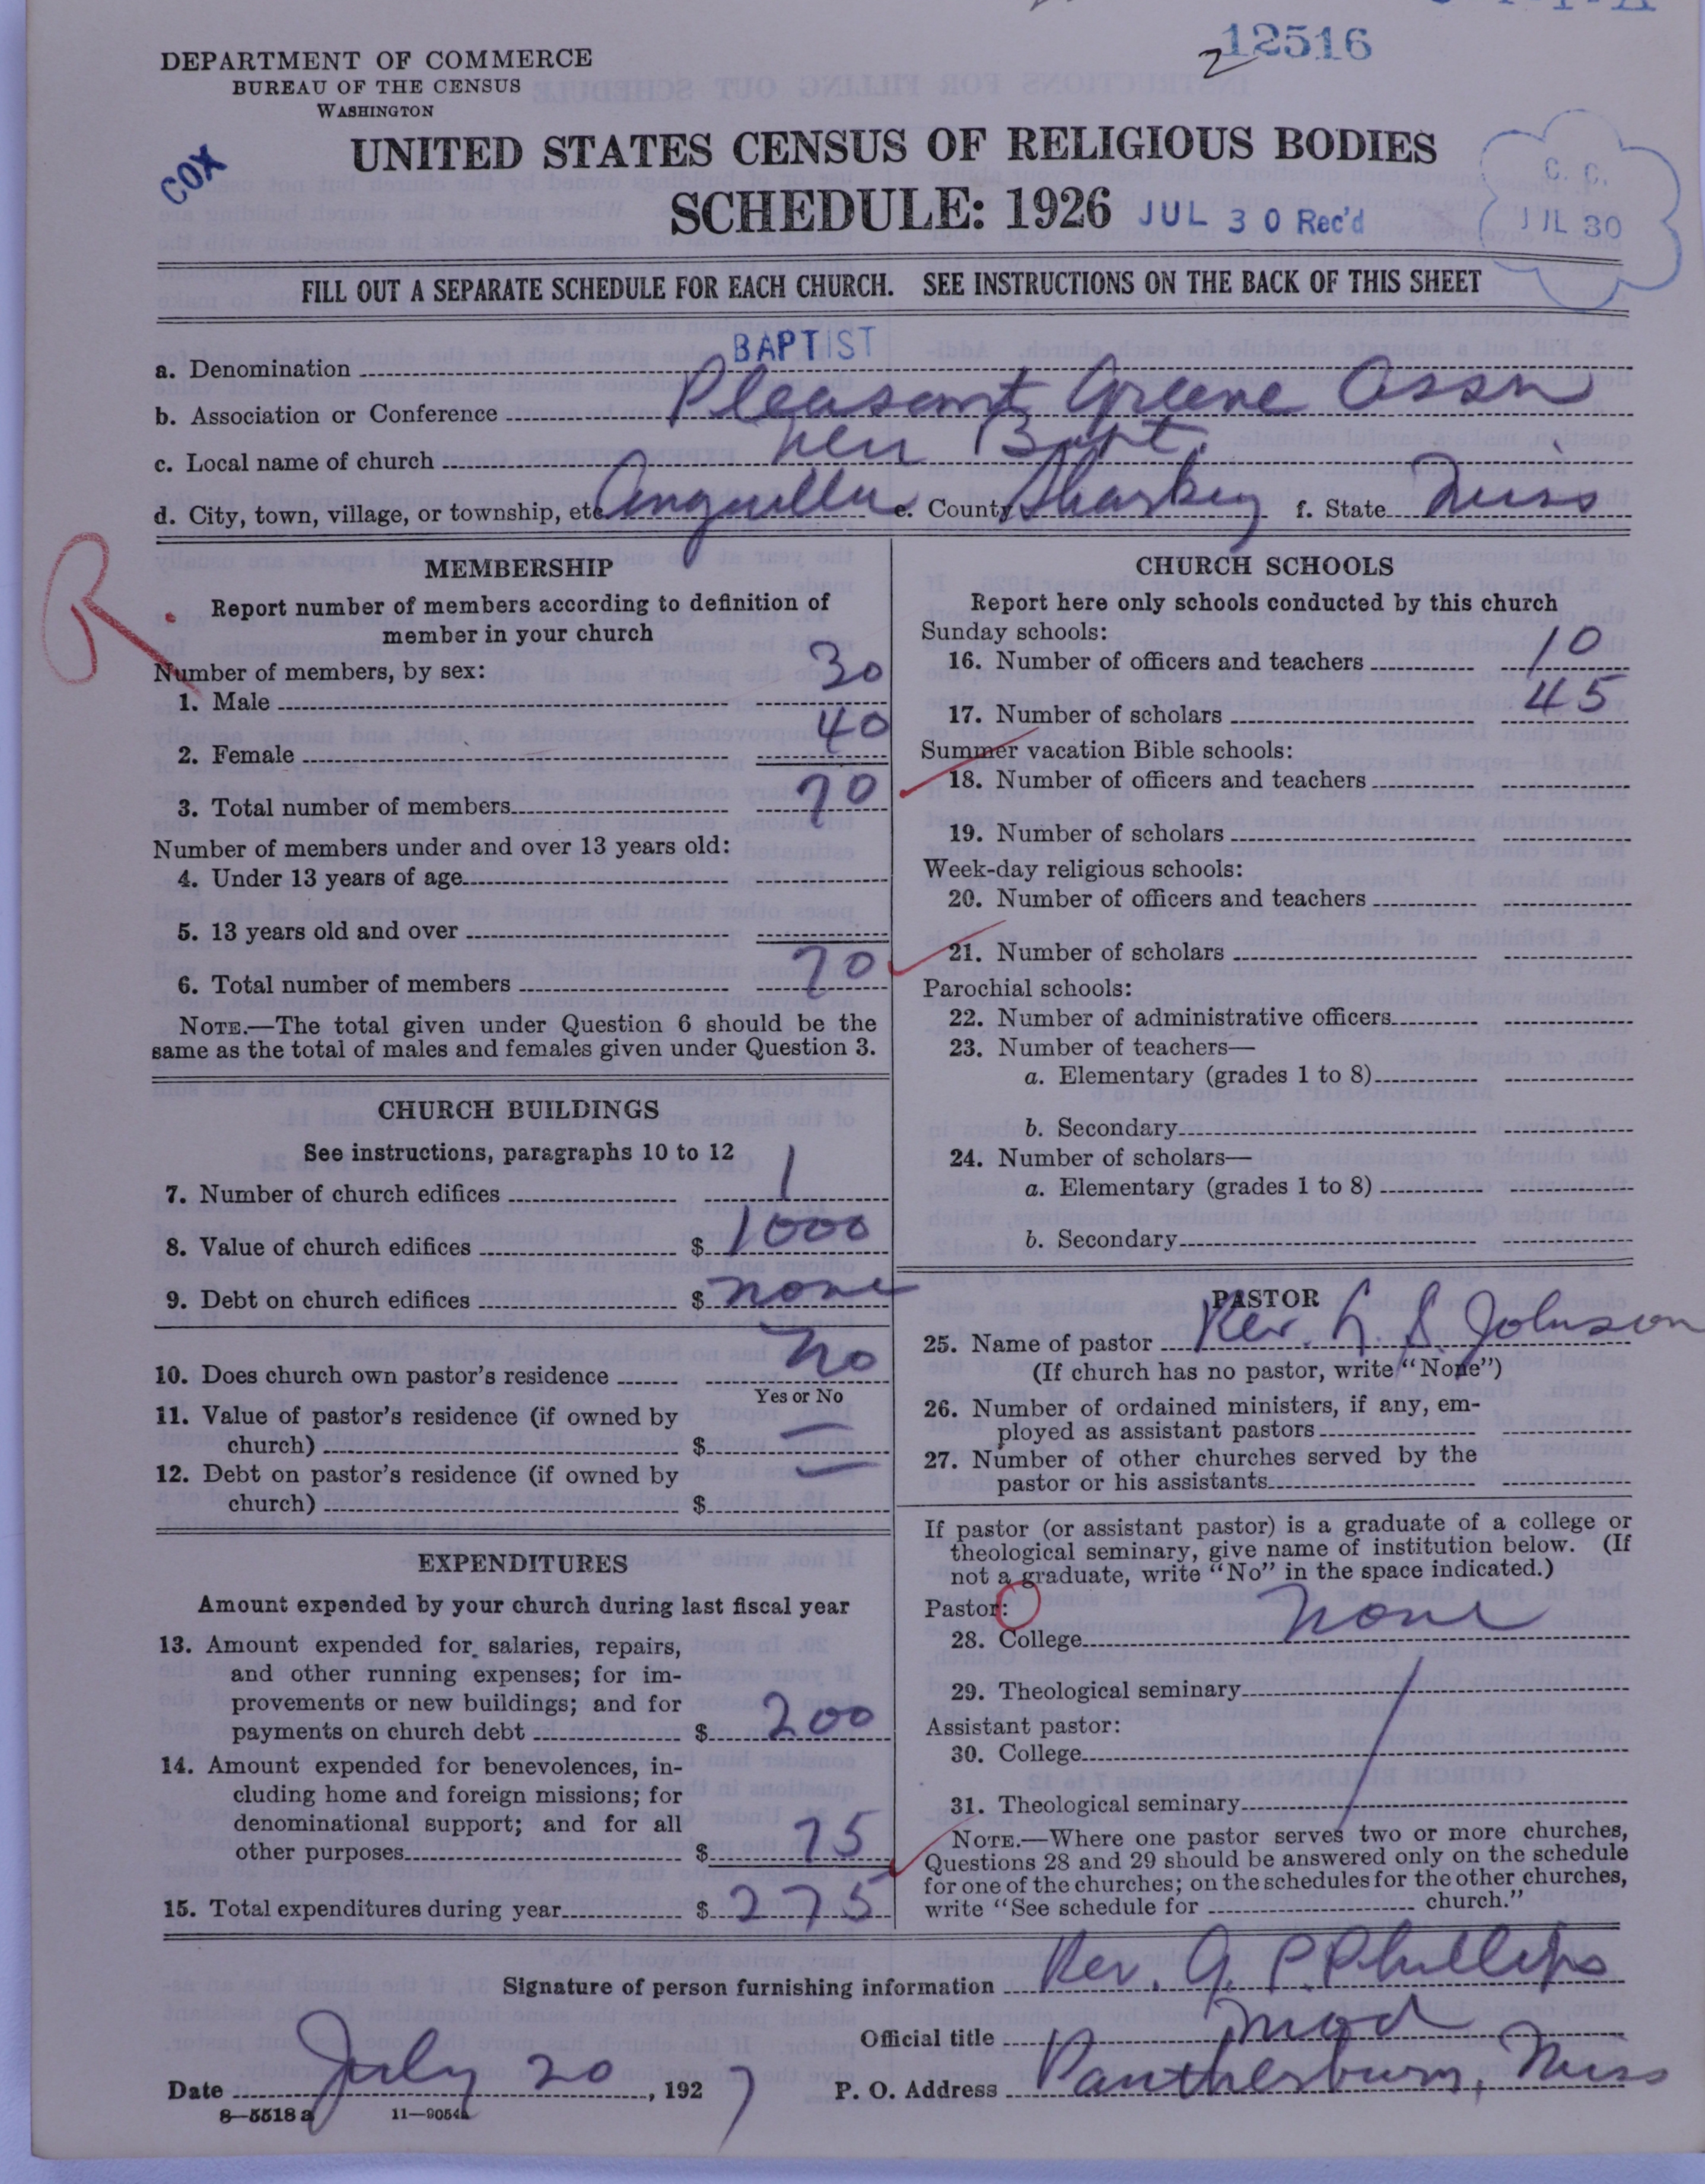 2 12516
DEPARTMENT OF COMMERCE
BUREAU OF THE CENSUS
WASHINGTON
COX
UNITED STATES CENSUS OF RELIGIOUS BODIES
SCHEDULE: 1926 JUL 30 Rec'd
C. C.
JUL 30
FILL OUT A SEPARATE SCHEDULE FOR EACH CHURCH. SEE INSTRUCTIONS ON THE BACK OF THIS SHEET
a. Denomination BAPTIST
b. Association or Conference Pleasant Greene Assn
c. Local name of church Bapt.
d. City, town, village, or township, etc. Anguilla e. County Sharkey f. State Miss
R
MEMBERSHIP
Report number of members according to definition of
member in your church
Number of members, by sex:
1. Male 30
2. Female 40
3. Total number of members 70
Number of members under and over 13 years old:
4. Under 13 years of age
5. 13 years old and over
6. Total number of members 70
NOTE.—The total given under Question 6 should be the
same as the total of males and females given under Question 3.
CHURCH BUILDINGS
See instructions, paragraphs 10 to 12
7. Number of church edifices 1
8. Value of church edifices $ 1000
9. Debt on church edifices $ none
10. Does church own pastor's residence No
Yes or No
11. Value of pastor's residence (if owned by
church) $ —
12. Debt on pastor's residence (if owned by
church) $ —
EXPENDITURES
Amount expended by your church during last fiscal year
13. Amount expended for salaries, repairs,
and other running expenses; for im-
provements or new buildings; and for
payments on church debt $ 200
14. Amount expended for benevolences, in-
cluding home and foreign missions; for
denominational support; and for all
other purposes $ 75
15. Total expenditures during year $ 275
CHURCH SCHOOLS
Report here only schools conducted by this church
Sunday schools:
16. Number of officers and teachers 10
17. Number of scholars 45
Summer vacation Bible schools:
18. Number of officers and teachers
19. Number of scholars
Week-day religious schools:
20. Number of officers and teachers
21. Number of scholars
Parochial schools:
22. Number of administrative officers
23. Number of teachers—
a. Elementary (grades 1 to 8)
b. Secondary
24. Number of scholars—
a. Elementary (grades 1 to 8)
b. Secondary
PASTOR
25. Name of pastor Rev. S. Johnson
(If church has no pastor, write "None")
26. Number of ordained ministers, if any, em-
ployed as assistant pastors
27. Number of other churches served by the
pastor or his assistants
If pastor (or assistant pastor) is a graduate of a college or
theological seminary, give name of institution below. (If
not a graduate, write "No" in the space indicated.)
Pastor:
28. College none
29. Theological seminary
Assistant pastor:
30. College
31. Theological seminary
NOTE.—Where one pastor serves two or more churches,
Questions 28 and 29 should be answered only on the schedule
for one of the churches; on the schedules for the other churches,
write "See schedule for church."
Signature of person furnishing information Rev. G. P. Phillips
Official title Mod
Date July 20, 1927 P. O. Address Pantherburn, Miss
8—5518 a 11—9054